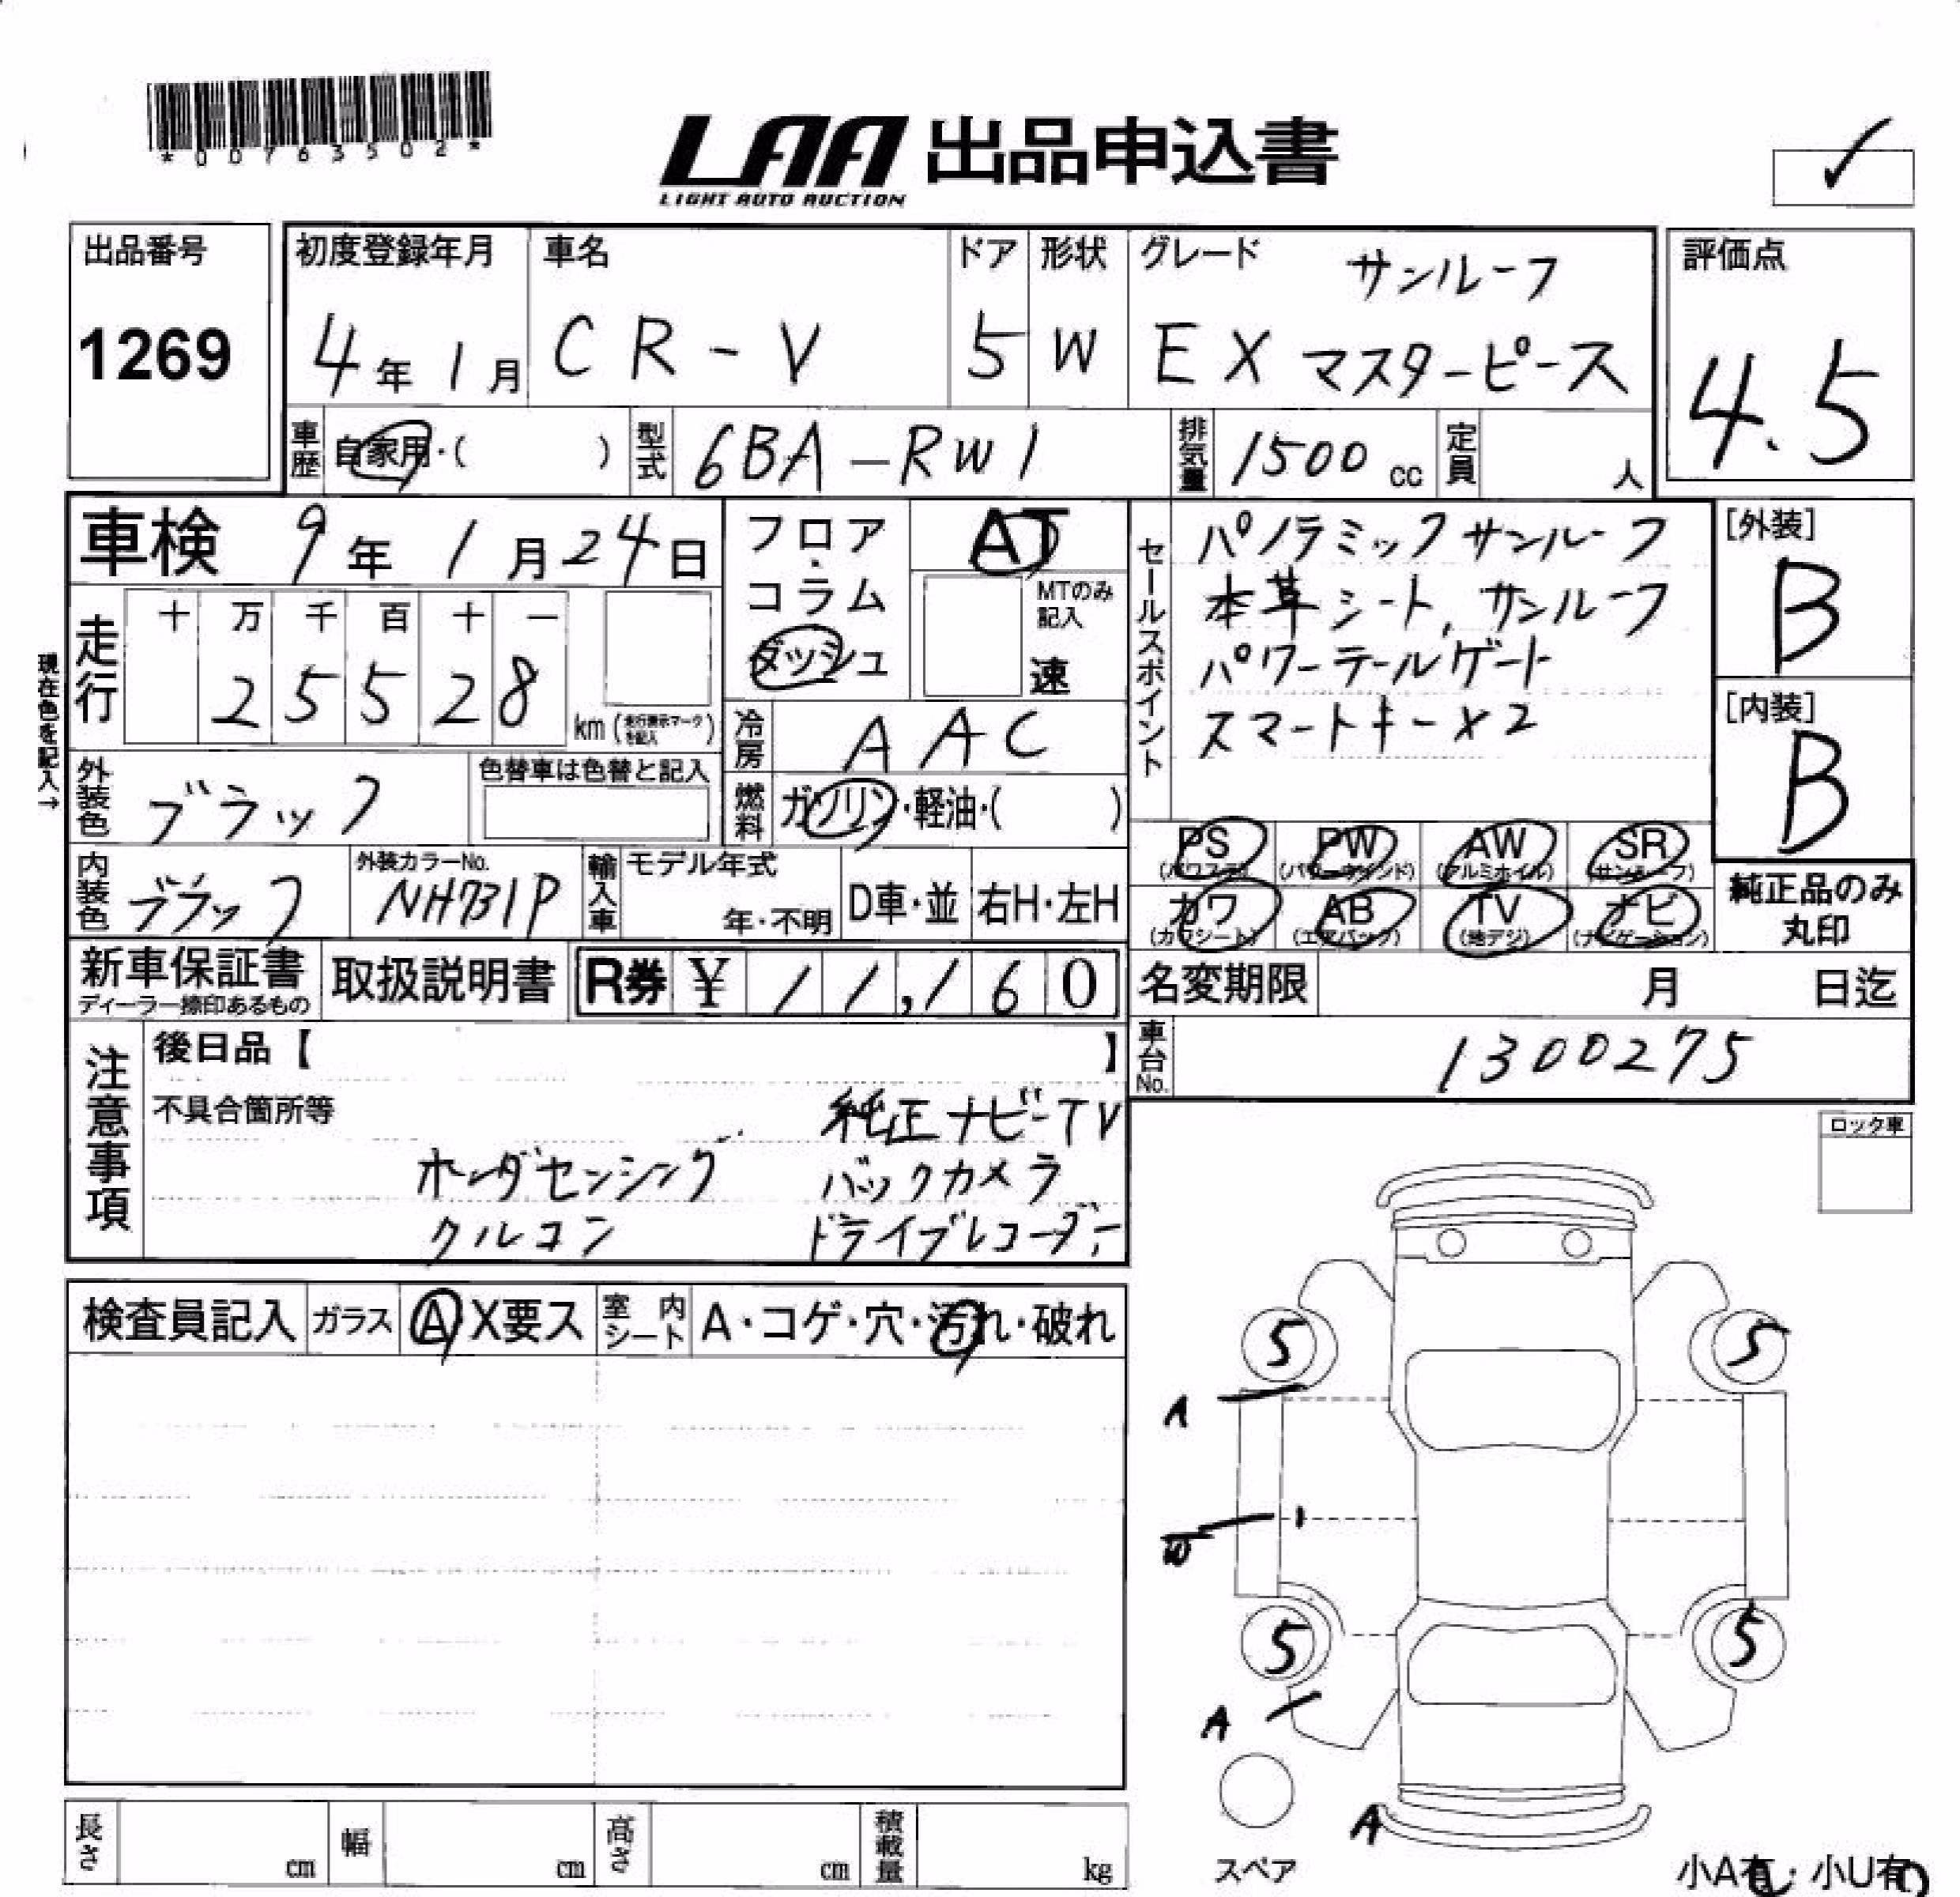 *00763502*
LAA 出品申込書
LIGHT AUTO AUCTION
出品番号
1269
初度登録年月
4年1月
車名
CR-V
ドア
5
形状
W
グレード
サンルーフ
EX マスターピース
評価点
4.5
車歴
自家用・( )
型式
6BA-RW1
排気量
1500 cc
定員
人
車検 9年1月24日
走行
十 万 千 百 十 一
2 5 5 2 8
km (走行表示マークを記入)
現在色を記入→
フロア・コラム
ダッシュ
AT
MTのみ記入
速
冷房
AAC
燃料
ガソリン・軽油・( )
セールスポイント
パノラミックサンルーフ
本革シート, サンルーフ
パワーテールゲート
スマートキー×2
[外装]
B
[内装]
B
外装色
ブラック
色替車は色替と記入
内装色
ブラック
外装カラーNo.
NH731P
輸入車
モデル年式
年・不明
D車・並
右H・左H
PS
(パワステ)
PW
(パワーウインド)
AW
(アルミホイル)
SR
(サンルーフ)
カワ
(カワシート)
AB
(エアバック)
TV
(地デジ)
ナビ
(ナビゲーション)
純正品のみ
丸印
新車保証書
ディーラー捺印あるもの
取扱説明書
R券 ¥ 11,160
名変期限 月 日迄
車台No.
1300275
注意事項
後日品【 】
不具合箇所等
純正ナビ-TV
ホンダセンシング バックカメラ
クルコン ドライブレコーダー
ロック車
検査員記入
ガラス
A X要ス
室内シート
A・コゲ・穴・汚れ・破れ
5
5
A
W
5
5
A
A
スペア
小A有・小U有
長さ
cm
幅
cm
高さ
cm
積載量
kg